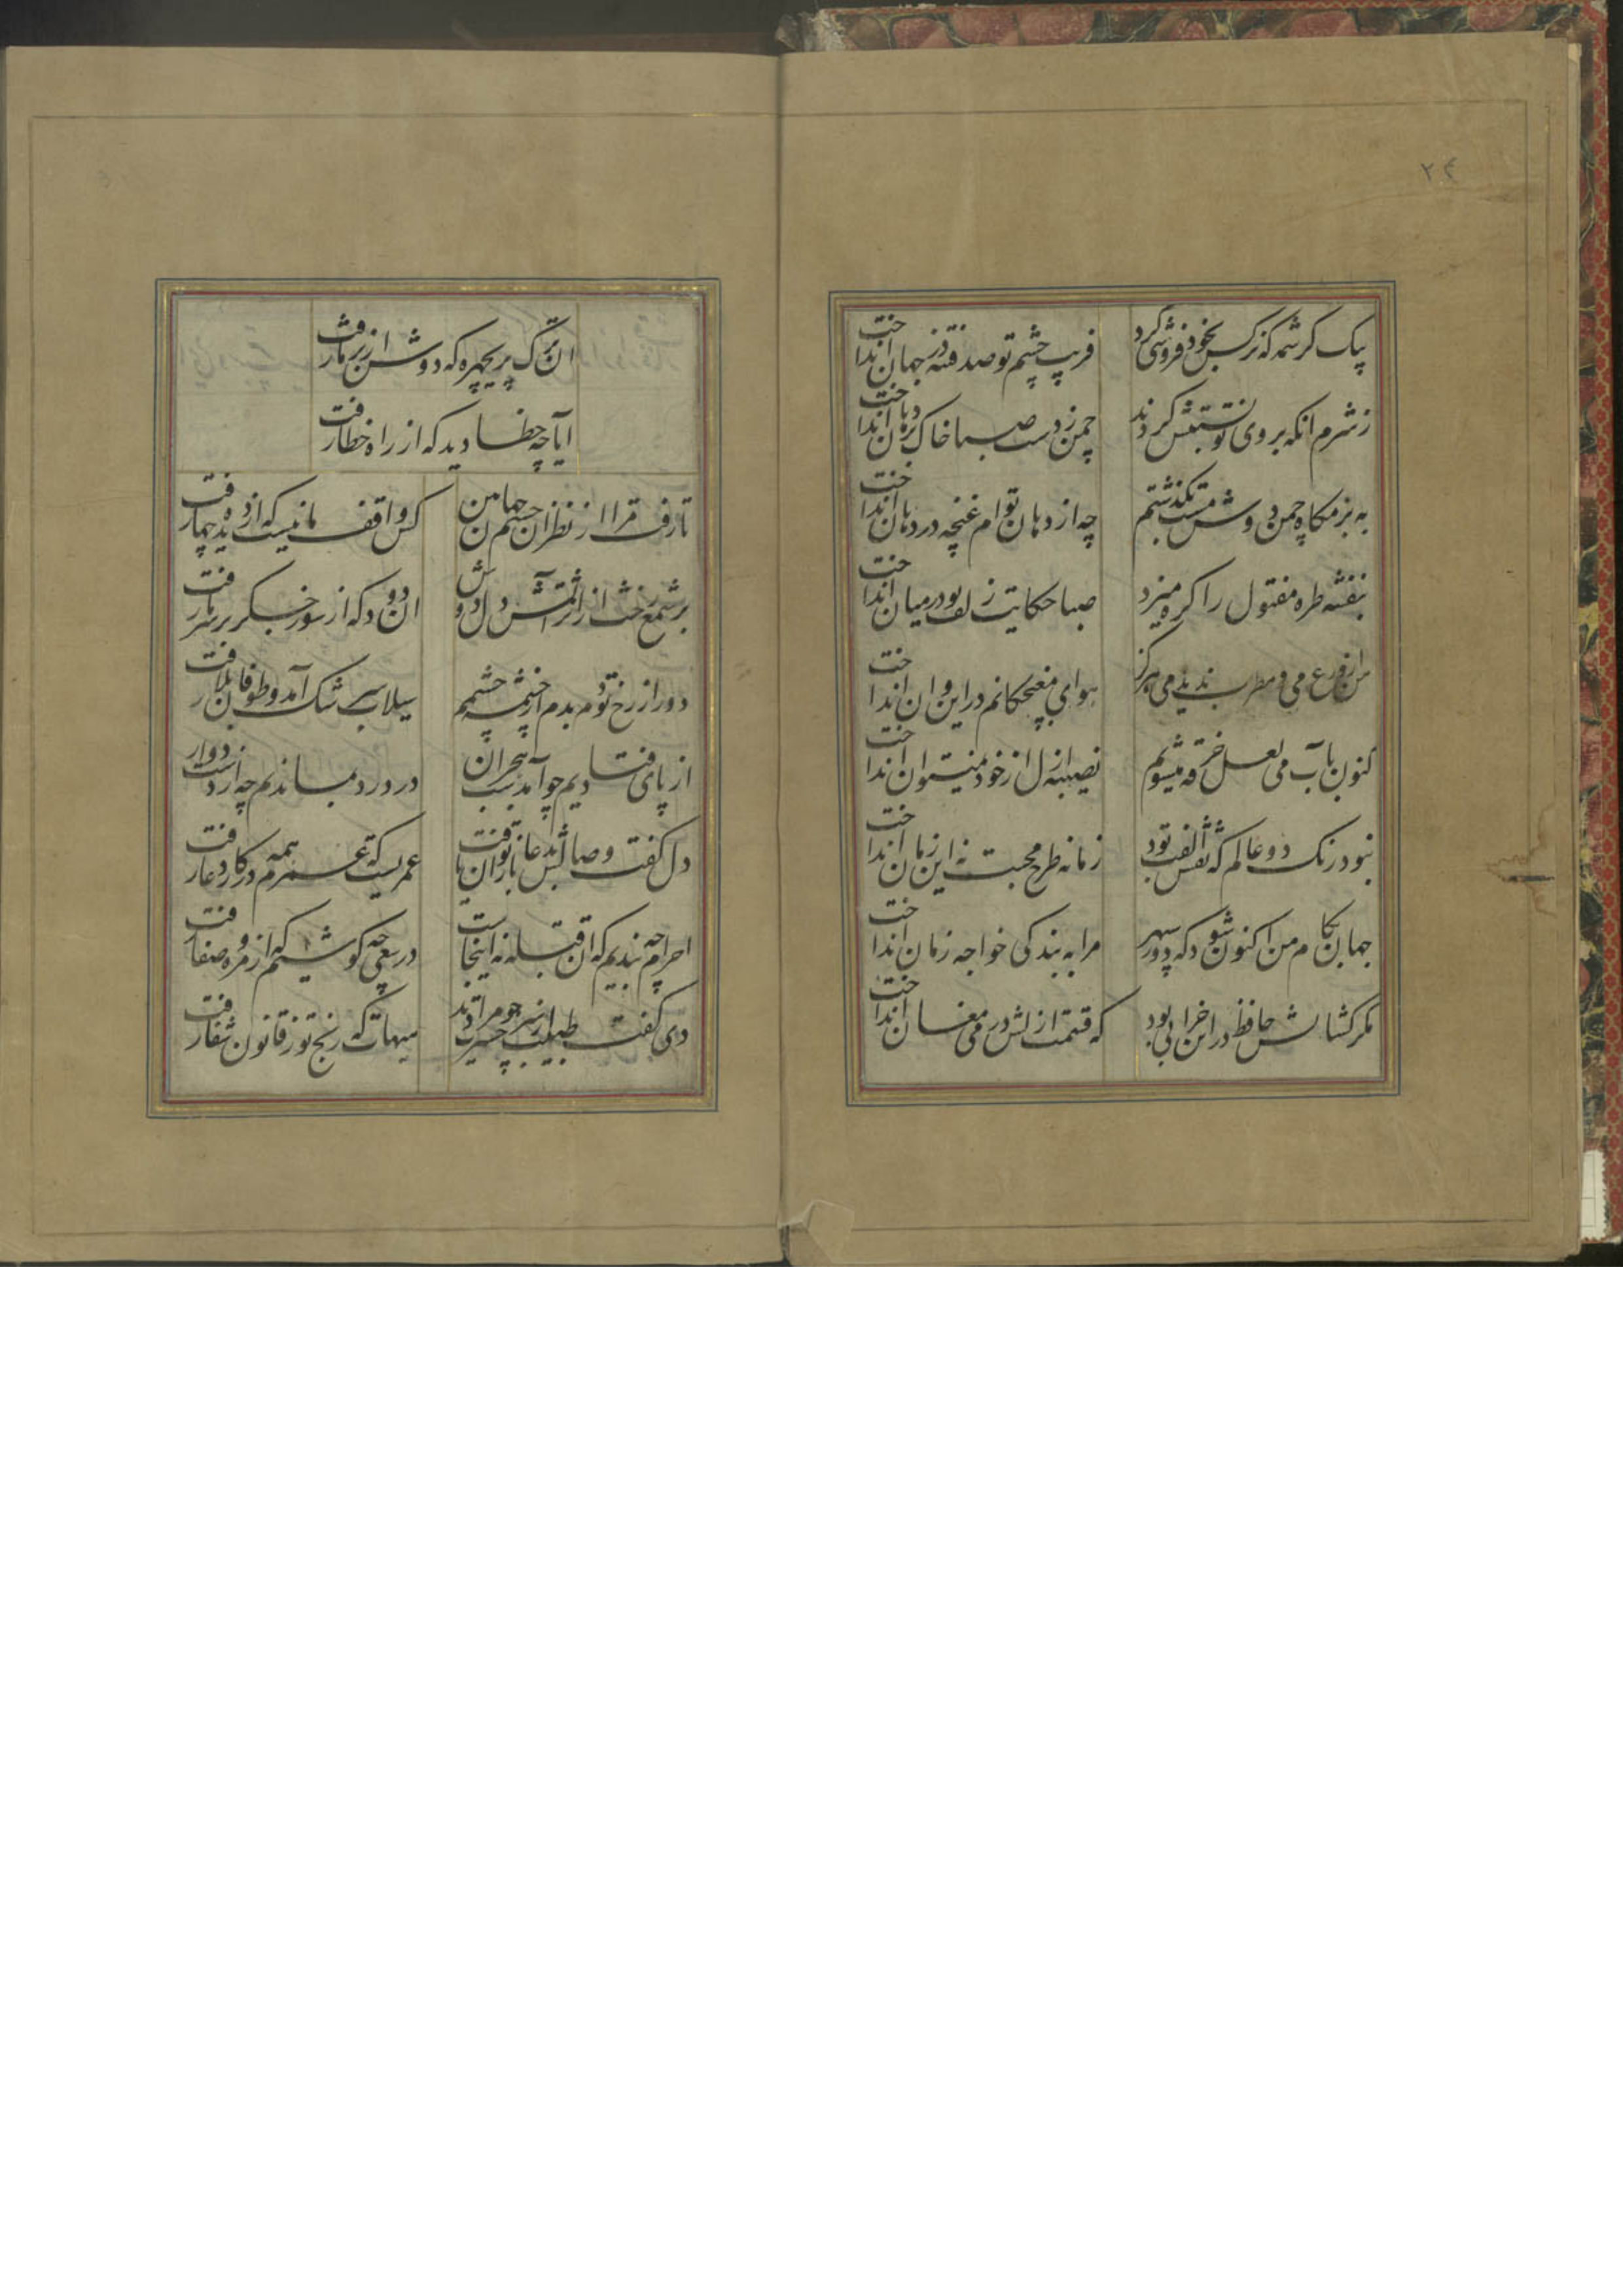 ۲۴
یک کرشمه که نرکس بخود فروشی کرد
فریب چشم تو صد فتنه در جهان انداخت
ز شرم انکه بروی تو نسبتش کردند
چمن ز دست صبا خاک در دهان انداخت
به بزمکاه چمن دوش مست بکذشتم
چه از دهان توام غنچه در دهان انداخت
بنفشه طره مفتول را کره میزد
صبا حکایت زلف تو در میان انداخت
من از ورع می و مطرب ندیدمی هرکز
هوای مغبچکانم در این و ان انداخت
کنون بآب می لعل خرقه میشویم
نصیبه ازل از خود نمیتوان انداخت
نبود رنک دو عالم که نقش الفت بود
زمانه طرح محبت نه این زمان انداخت
جهان بکام من اکنون شود که دور سپهر
مرا به بندکی خواجه زمان انداخت
مکر کشایش حافظ در این خرابی بود
که قسمت ازلش در می مغان انداخت
ان ترک پریچهره که دوش از بر ما رفت
ایا چه خطا دید که از راه خطا رفت
تا رفت مرا از نظر ان چشم جهان بین
کس واقف ما نیست که از دیده چها رفت
بر شمع نرفت از اثر آتش دل دوش
ان دود که از سوز جکر بر سر ما رفت
دور از رخ تو دم بدم از چشمه چشمم
سیلاب سرشک آمد و طوفان بلا رفت
از پای فتادیم چو آمد شب هجران
در درد بماندیم چه از دست دوا رفت
دل کفت وصالش بدعا باز توان یافت
عمریست که عمرم همه در کار دعا رفت
احرام چه بندیم که ان قبله نه اینجاست
در سعی چه کوشیم که از مروه صفا رفت
دی کفت طبیب از سر حسرت چو مرا دید
هیهات که رنج تو ز قانون شفا رفت